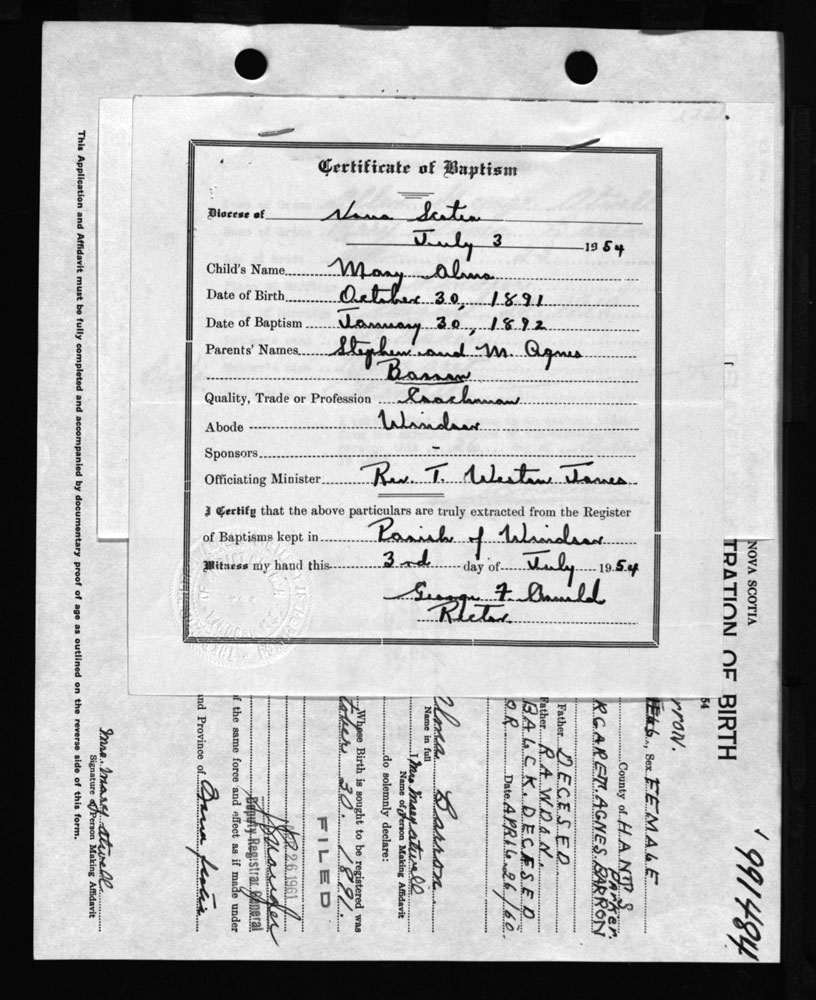 Certificate of Baptism
Diocese of Nova Scotia
July 3 1954
Child's Name Mary Alma
Date of Birth October 30, 1891
Date of Baptism January 30, 1892
Parents' Names Stephen and M. Agnes
Barron
Quality, Trade or Profession Coachman
Abode Windsor
Sponsors -
Officiating Minister Rev. T. Weston Jones
I Certify that the above particulars are truly extracted from the Register
of Baptisms kept in Parish of Windsor
Witness my hand this 3rd day of July 1954
George F.
Rector.
This Application and Affidavit must be fully completed and accompanied by documentary proof of age as outlined on the reverse side of this form.
NOVA SCOTIA
TRATION OF BIRTH
991484
54
rron.
Feb., Sex FEMALE
County of HANTS
Parker
RGARET. AGNES. BARRON
Father DECESED
Father RAWDAN.
DECESED
OR. Date APRIL. 26/60.
Alma Barron
Name in full
I Mrs Mary Atwell
Name of Person Making Affidavit
do solemnly declare:
Whose Birth is sought to be registered was
tober 30. 1891.
FILED
26 1961
Deputy Registrar General
f the same force and effect as if made under
nd Province of Nova Scotia
Mrs. Mary Atwell
Signature of Person Making Affidavit